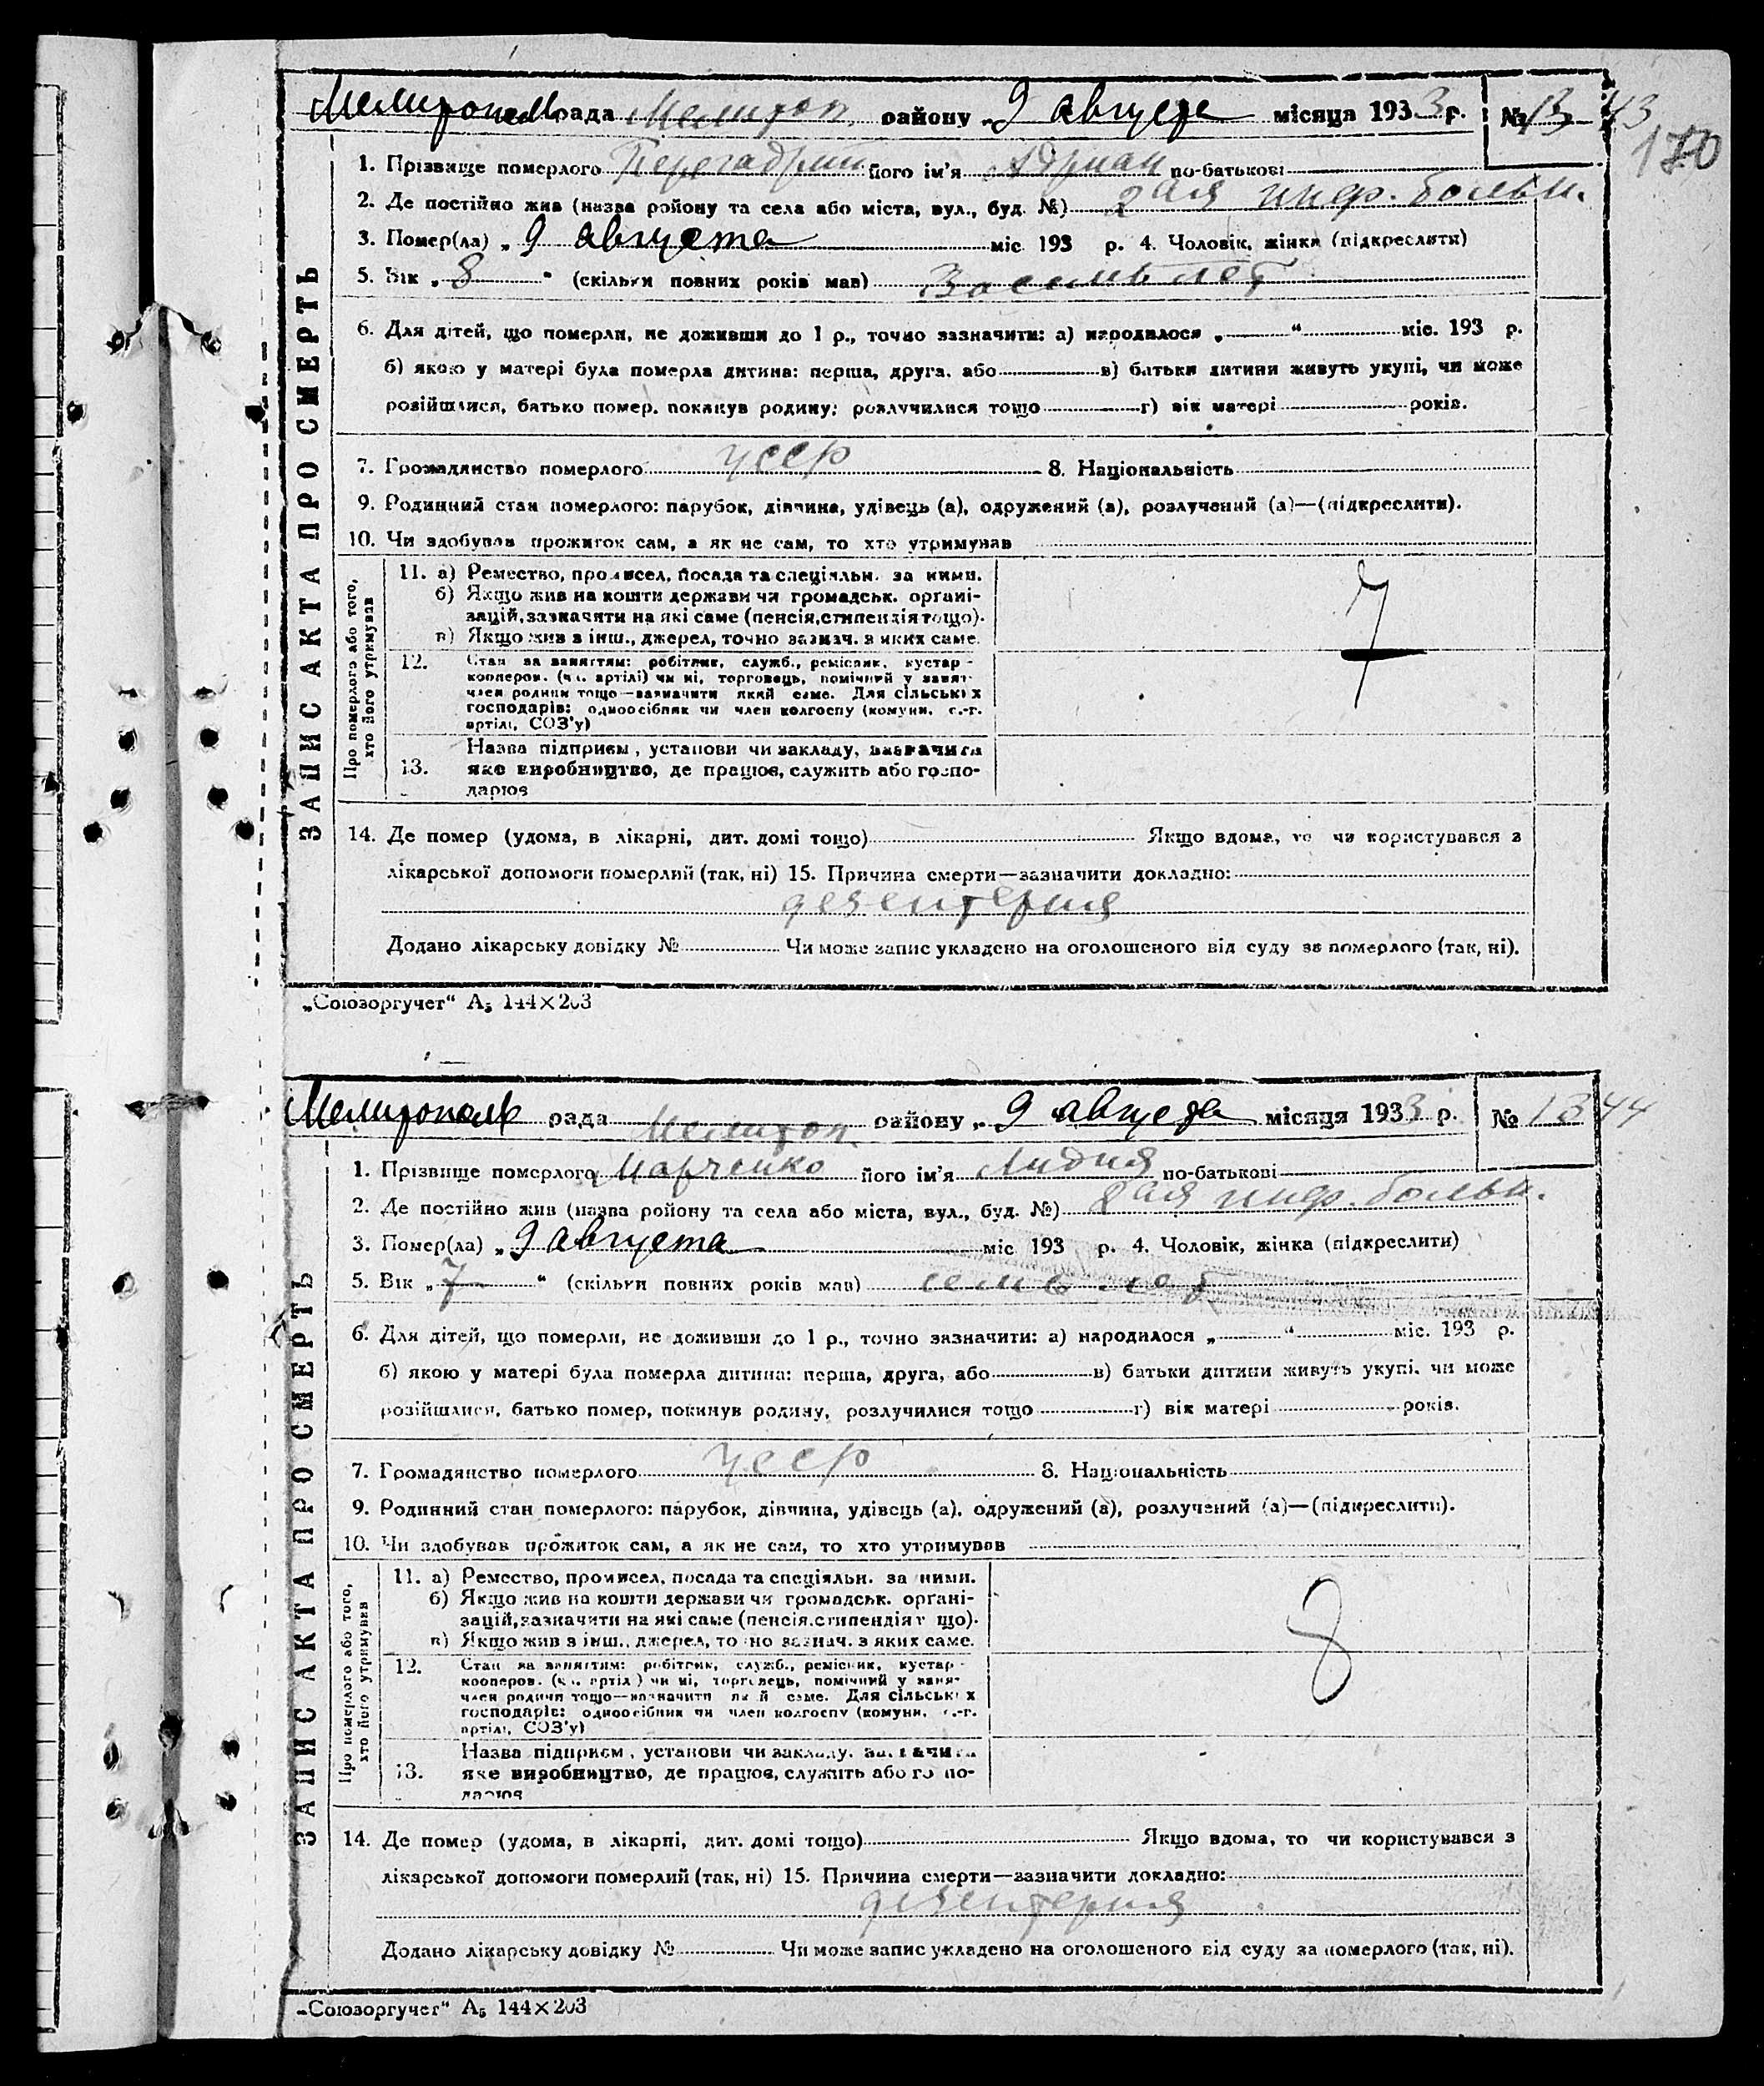 Мелитополь рада Мелитоп. району „9 августа місяця 1933 р. № 1343
170
1. Прізвище померлого його ім'я Адриан по-батькові
2. Де постійно жив (назва району та села або міста, вул., буд. №) 2ая инф. больн.
3. Помер(ла) „9 августа міс. 193 р. 4. Чоловік, жінка (підкреслити)
5. Вік „8 “ (скільки повних років мав) Восемь лет
6. Для дітей, що померли, не доживши до 1 р., точно зазначити: а) народилося „ “ міс. 193 р.
б) якою у матері була померла дитина: перша, друга, або в) батьки дитини живуть укупі, чи може
розійшлися, батько помер, покинув родину; розлучилися тощо г) вік матері років.
7. Громадянство померлого усср 8. Національність
9. Родинний стан померлого: парубок, дівчина, удівець (а), одружений (а), розлучений (а)—(підкреслити).
10. Чи здобував прожиток сам, а як не сам, то хто утримував
ЗАПИС АКТА ПРО СМЕРТЬ
Про померлого або того, хто його утримував
11. а) Ремество, промисел, посада та спеціяльн. за ними.
б) Якщо жив на кошти держави чи громадськ. органі-
зацій, зазначити на які саме (пенсія, стипендія тощо).
в) Якщо жив з інш., джерел, точно зазнач. з яких саме.
7
12. Стан за заняттям: робітник, служб., ремісник, кустар-
кооперов. (чл. артілі) чи ні, торговець, помічний у занят-
член родини тощо—зазначити який саме. Для сільських
господарів: одноосібник чи член колгоспу (комуни, с.-г.
артілі, СОЗ'у)
Назва підприєм., установи чи закладу, зазначити
13. яке виробництво, де працює, служить або госпо-
дарює
14. Де помер (удома, в лікарні, дит. домі тощо) Якщо вдома, то чи користувався з
лікарської допомоги померлий (так, ні) 15. Причина смерти—зазначити докладно:
дезентерия
Додано лікарську довідку № Чи може запис укладено на оголошеного від суду за померлого (так, ні).
„Союзоргучет“ А5 144×203
Мелитополь рада Мелитоп. району „9 августа місяця 1933 р. № 1344
1. Прізвище померлого Марченко його ім'я Лидия по-батькові
2. Де постійно жив (назва району та села або міста, вул., буд. №) 2ая инф. больн.
3. Помер(ла) „9 августа міс. 193 р. 4. Чоловік, жінка (підкреслити)
5. Вік „7 “ (скільки повних років мав) семь лет
6. Для дітей, що померли, не доживши до 1 р., точно зазначити: а) народилося „ “ міс. 193 р.
б) якою у матері була померла дитина: перша, друга, або в) батьки дитини живуть укупі, чи може
розійшлися, батько помер, покинув родину, розлучилися тощо г) вік матері років.
7. Громадянство померлого усср 8. Національність
9. Родинний стан померлого: парубок, дівчина, удівець (а), одружений (а), розлучений (а)—(підкреслити).
10. Чи здобував прожиток сам, а як не сам, то хто утримував
ЗАПИС АКТА ПРО СМЕРТЬ
Про померлого або того, хто його утримував
11. а) Ремество, промисел, посада та спеціяльн. за ними.
б) Якщо жив на кошти держави чи громадськ. органі-
зацій, зазначити на які саме (пенсія, стипендія тощо).
в) Якщо жив з інш., джерел, точно зазнач. з яких саме.
8
12. Стан за заняттям: робітник, служб., ремісник, кустар-
кооперов. (чл. артілі) чи ні, торговець, помічний у занят-
член родини тощо—зазначити який саме. Для сільських
господарів: одноосібник чи член колгоспу (комуни, с.-г.
артілі, СОЗ'у)
Назва підприєм., установи чи закладу, зазначити
13. яке виробництво, де працює, служить або госпо-
дарює
14. Де помер (удома, в лікарні, дит. домі тощо) Якщо вдома, то чи користувався з
лікарської допомоги померлий (так, ні) 15. Причина смерти—зазначити докладно:
дезентерия
Додано лікарську довідку № Чи може запис укладено на оголошеного від суду за померлого (так, ні).
„Союзоргучет“ А5 144×203